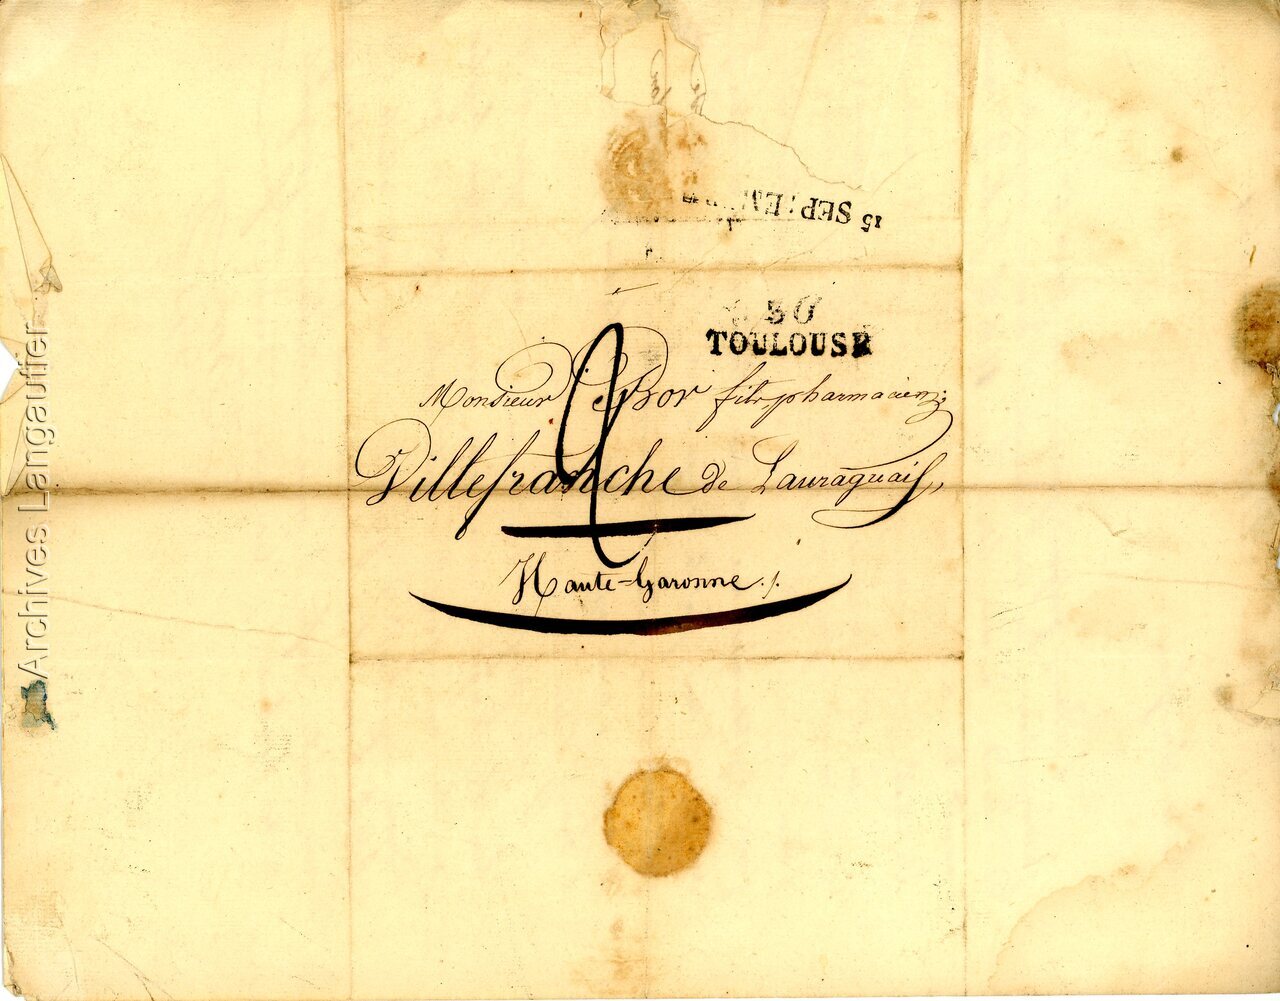 15 SEPTEM
30
TOULOUSE
Monsieur Bor fils, pharmacien;
Villefranche de Lauraguais,
2
Haute-Garonne ./.
Archives Langauffer